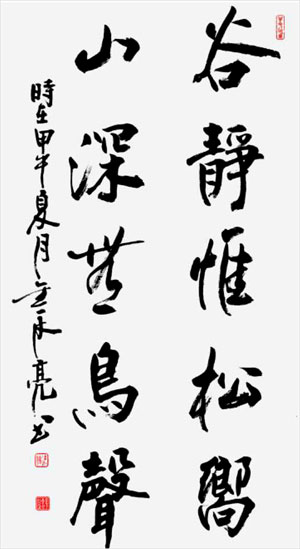 谷靜惟松嚮
山深無鳥聲
時在甲午夏月永亮书